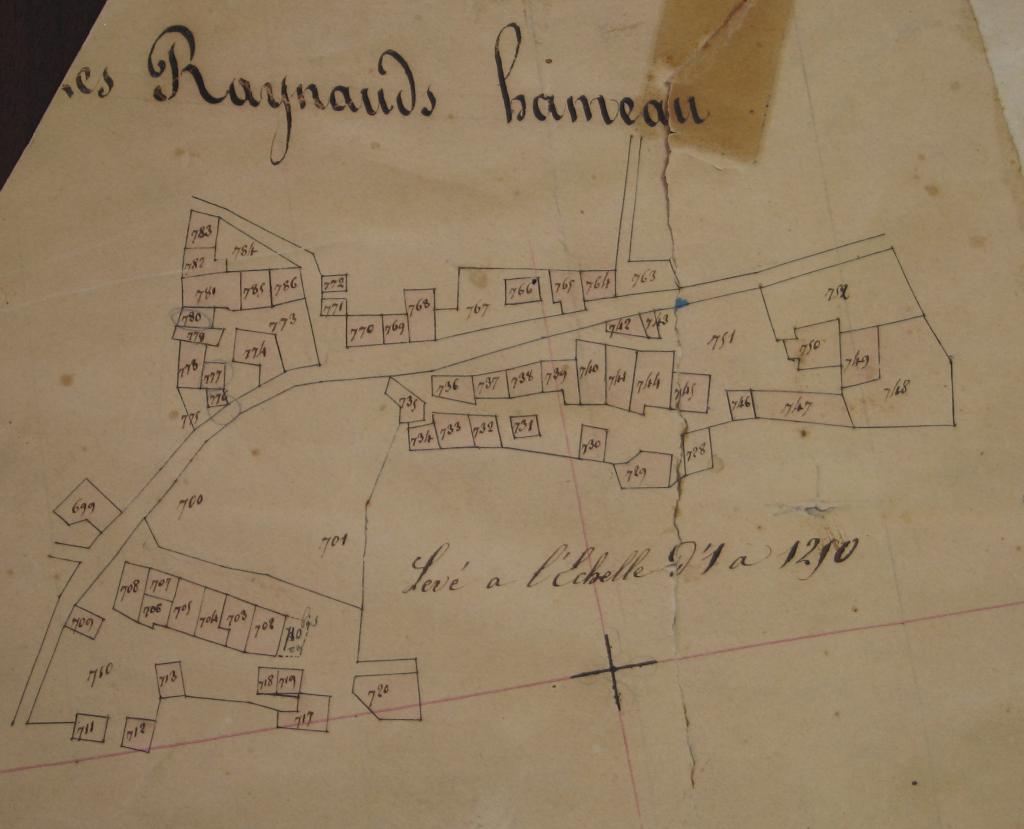 Les Raynauds hameau
783
784
782
781 785 786
772
771
768
767
766
765 764 763
780
779
773
774
770 769
778 777
776
775
742 743
751
752
750
749
748
736 737 738 739 740 741 744 745
746 747
735
734 733 732 731
730
729
728
699
700
701
Levé a l'Echelle D'1 a 1250
708 707
706 705 704 703 702
709
710
713
718 719
720
711 712
717